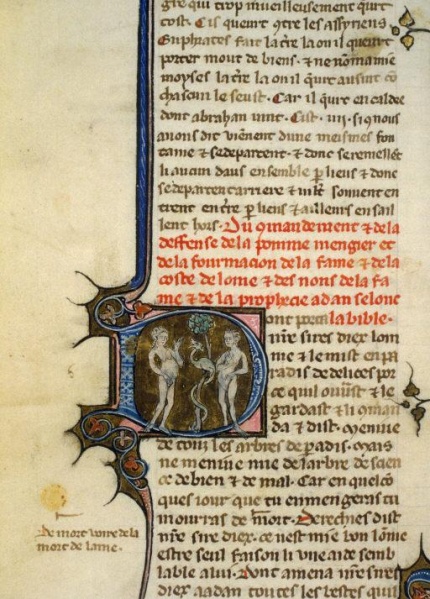 gre qui trop mueilleusement q̃urt
tost. Cis queurt ɔtre les assyriens.
Euphrates fait la tre la ou il queurt
porter mout de biens. ⁊ ne nomā mie
moyses la tre la ou il q̃urt
chascun le seust. Car il q̃urt en caldee
dont abrahan vint. Cist. iiij. si ɔ nous
auons dit viēnent dune meismes fon
taine ⁊ se departent. ⁊ donc se remellēt
li aucun daus ensemble p̱ lieus ⁊ donc
se departent arriere ⁊ souuent en
trent en t̃re p̱ lieus ⁊ ailleurs en sail
lent hors. Du ɔmandement ⁊ de la
deffense de la pomme mengier et
de la fourmacion de la fame ⁊ de la
coste de lome ⁊ des nons de la fa
me ⁊ de la prophecie adan selonc
la bible.
nr̃e sires diex lom
me ⁊ le mist en pa
radis de delices por
ce quil ouurast ⁊ le
gardast ⁊ li ɔman
da ⁊ dist. Meniue
de touz les arbres de p̱adis. Mais
ne meniue mie de larbre de scien
ce de bien ⁊ de mal. Car en quelcō
ques iour que tu en mengeras tu
mourras de mort. Derechief dist
nr̃e sire diex. ce nest mie bon lōme
estre seul faison li une aide semb
lable a lui. Dont amena nr̃e sires
diex a adan toutes les bestes quil
De mort voire de la
mort de lame.